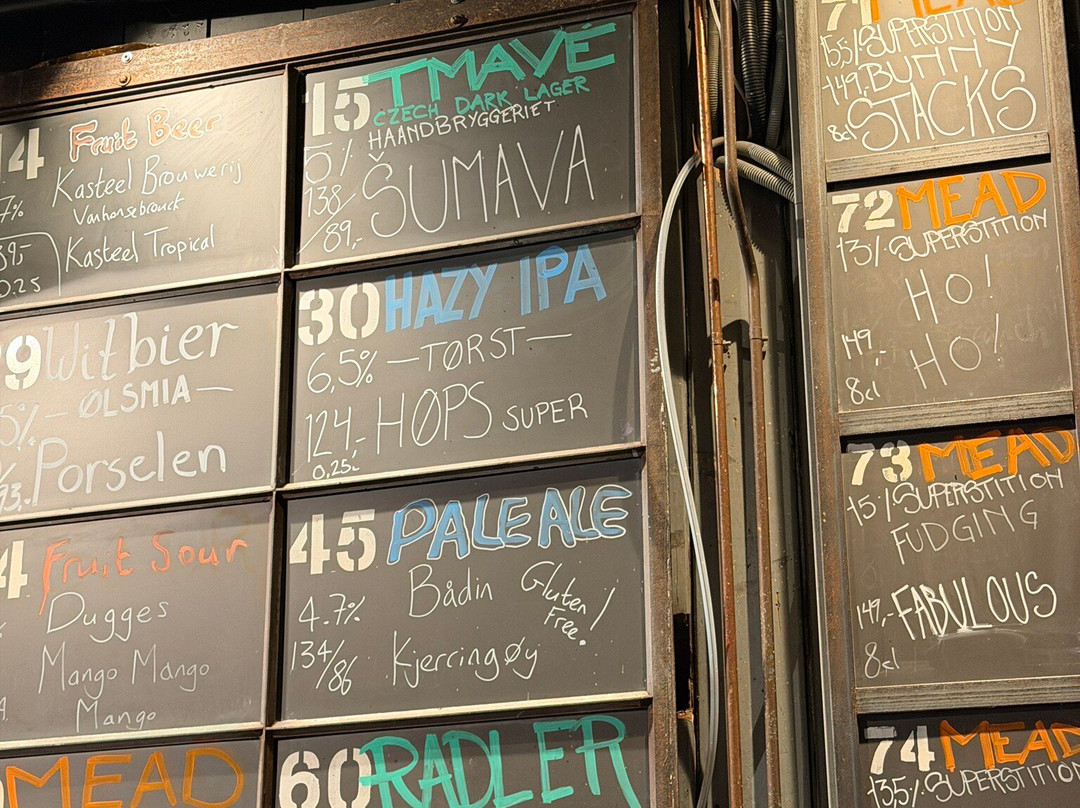 4 Fruit Beer
Kasteel Brouwerij
7%
Vanhonsebrouck
39,-
0.25
Kasteel Tropical
9 Witbier
5% — ØLSMIA —
93,- Porselen
4 Fruit Sour
Dugges
Mango Mango
Mango
MEAD
15 TMAVÉ
CZECH DARK LAGER
HAANDBRYGGERIET
5%
138/
89,-
ŠUMAVA
30 HAZY IPA
6,5% — TØRST —
124,- HØPS SUPER
0,25L
45 PALE ALE
4.7% Bådin Gluten
Free!
134/
86 Kjerringøy
60 RADLER
71 MEAD
15,5% SUPERSTITION
149,- BUNNY
8cl STACKS
72 MEAD
13% SUPERSTITION
HO!
149,-
HO!
8cl
73 MEAD
15% SUPERSTITION
FUDGING
149,- FABULOUS
8cl
74 MEAD
13,5% SUPERSTITION